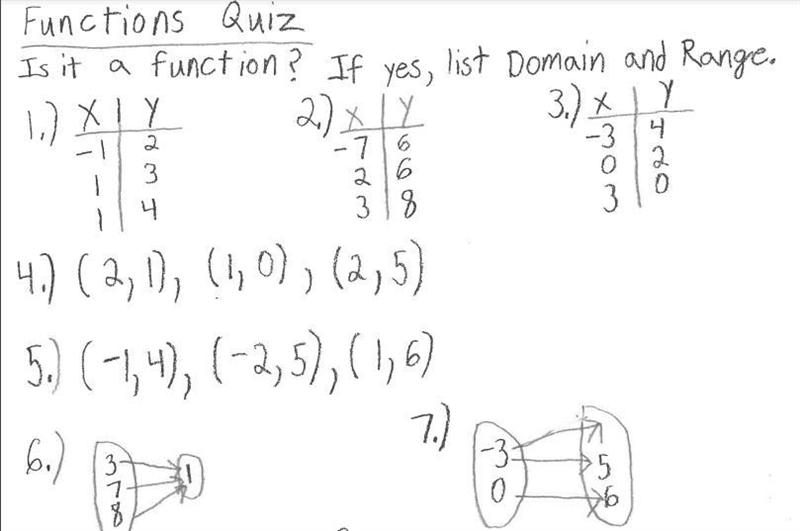 Functions Quiz
Is it a function? If yes, list Domain and Range.
1.) X Y
-1 2
1 3
1 4
2.) X Y
-7 6
2 6
3 8
3.) X Y
-3 4
0 2
3 0
4.) (2,1), (1,0), (2,5)
5.) (-1,4), (-2,5), (1,6)
6.)
3 1
7
8
7.)
-3
5
0
6